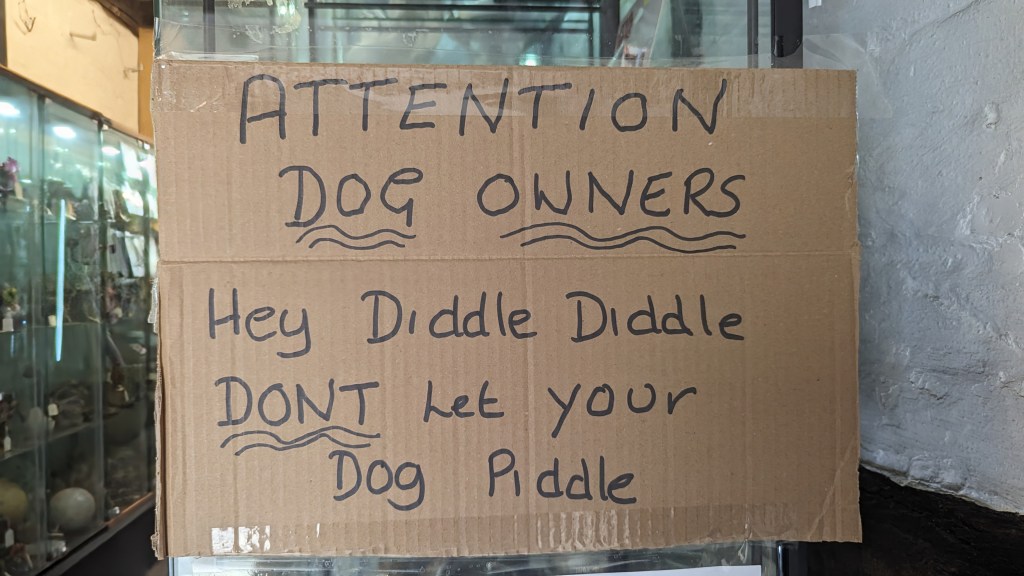 ATTENTION
DOG OWNERS
Hey Diddle Diddle
DONT Let your
Dog Piddle